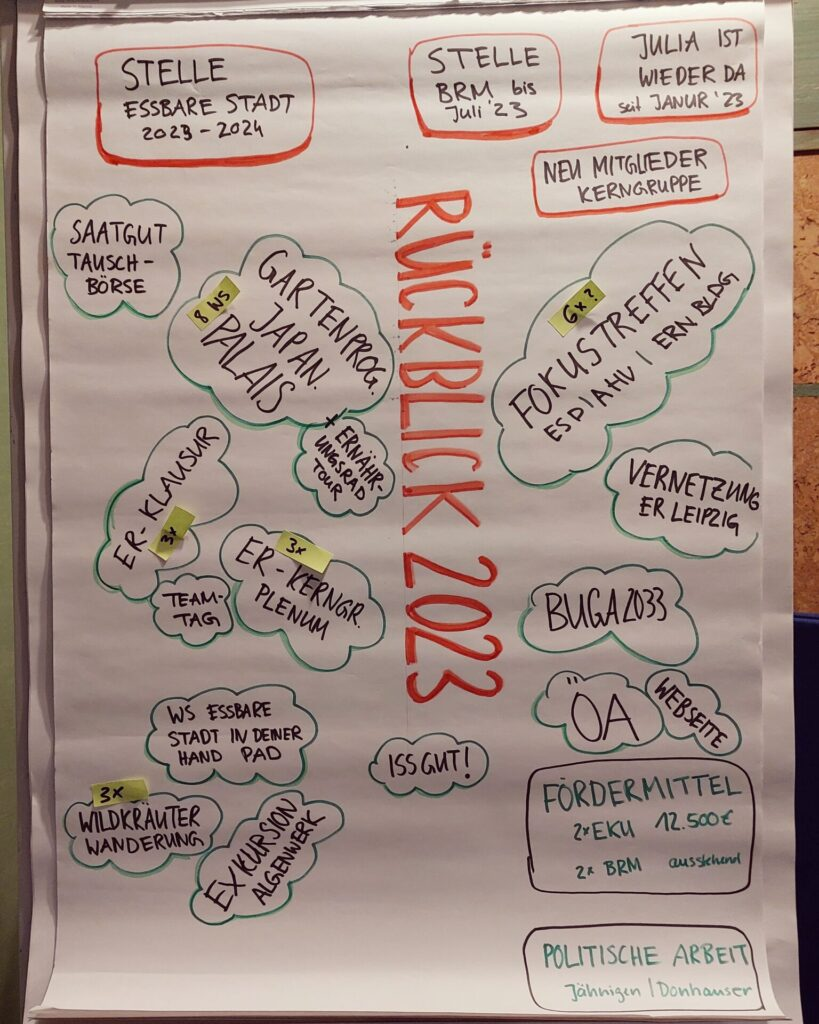 STELLE
ESSBARE STADT
2023 - 2024
STELLE
BRM bis
Juli '23
JULIA IST
WIEDER DA
seit JANUR '23
NEU MITGLIEDER
KERNGRUPPE
RÜCKBLICK 2023
SAATGUT
TAUSCH-
BÖRSE
8 WS
GARTENPROG.
JAPAN.
PALAIS
+ ERNÄHR-
UNGSRAD
TOUR
6x?
FOKUSTREFFEN
ESD/AHV/ERN BLDG
VERNETZUNG
ER LEIPZIG
ER-KLAUSUR
3x
TEAM-
TAG
3x
ER-KERNGR.
PLENUM
BUGA 2033
ÖA
WEBSEITE
WS ESSBARE
STADT IN DEINER
HAND PAD
ISS GUT!
3x
WILDKRÄUTER
WANDERUNG
EXKURSION
ALGENWERK
FÖRDERMITTEL
2x EKU 12.500€
2x BRM ausstehend
POLITISCHE ARBEIT
Jähnigen / Donhauser